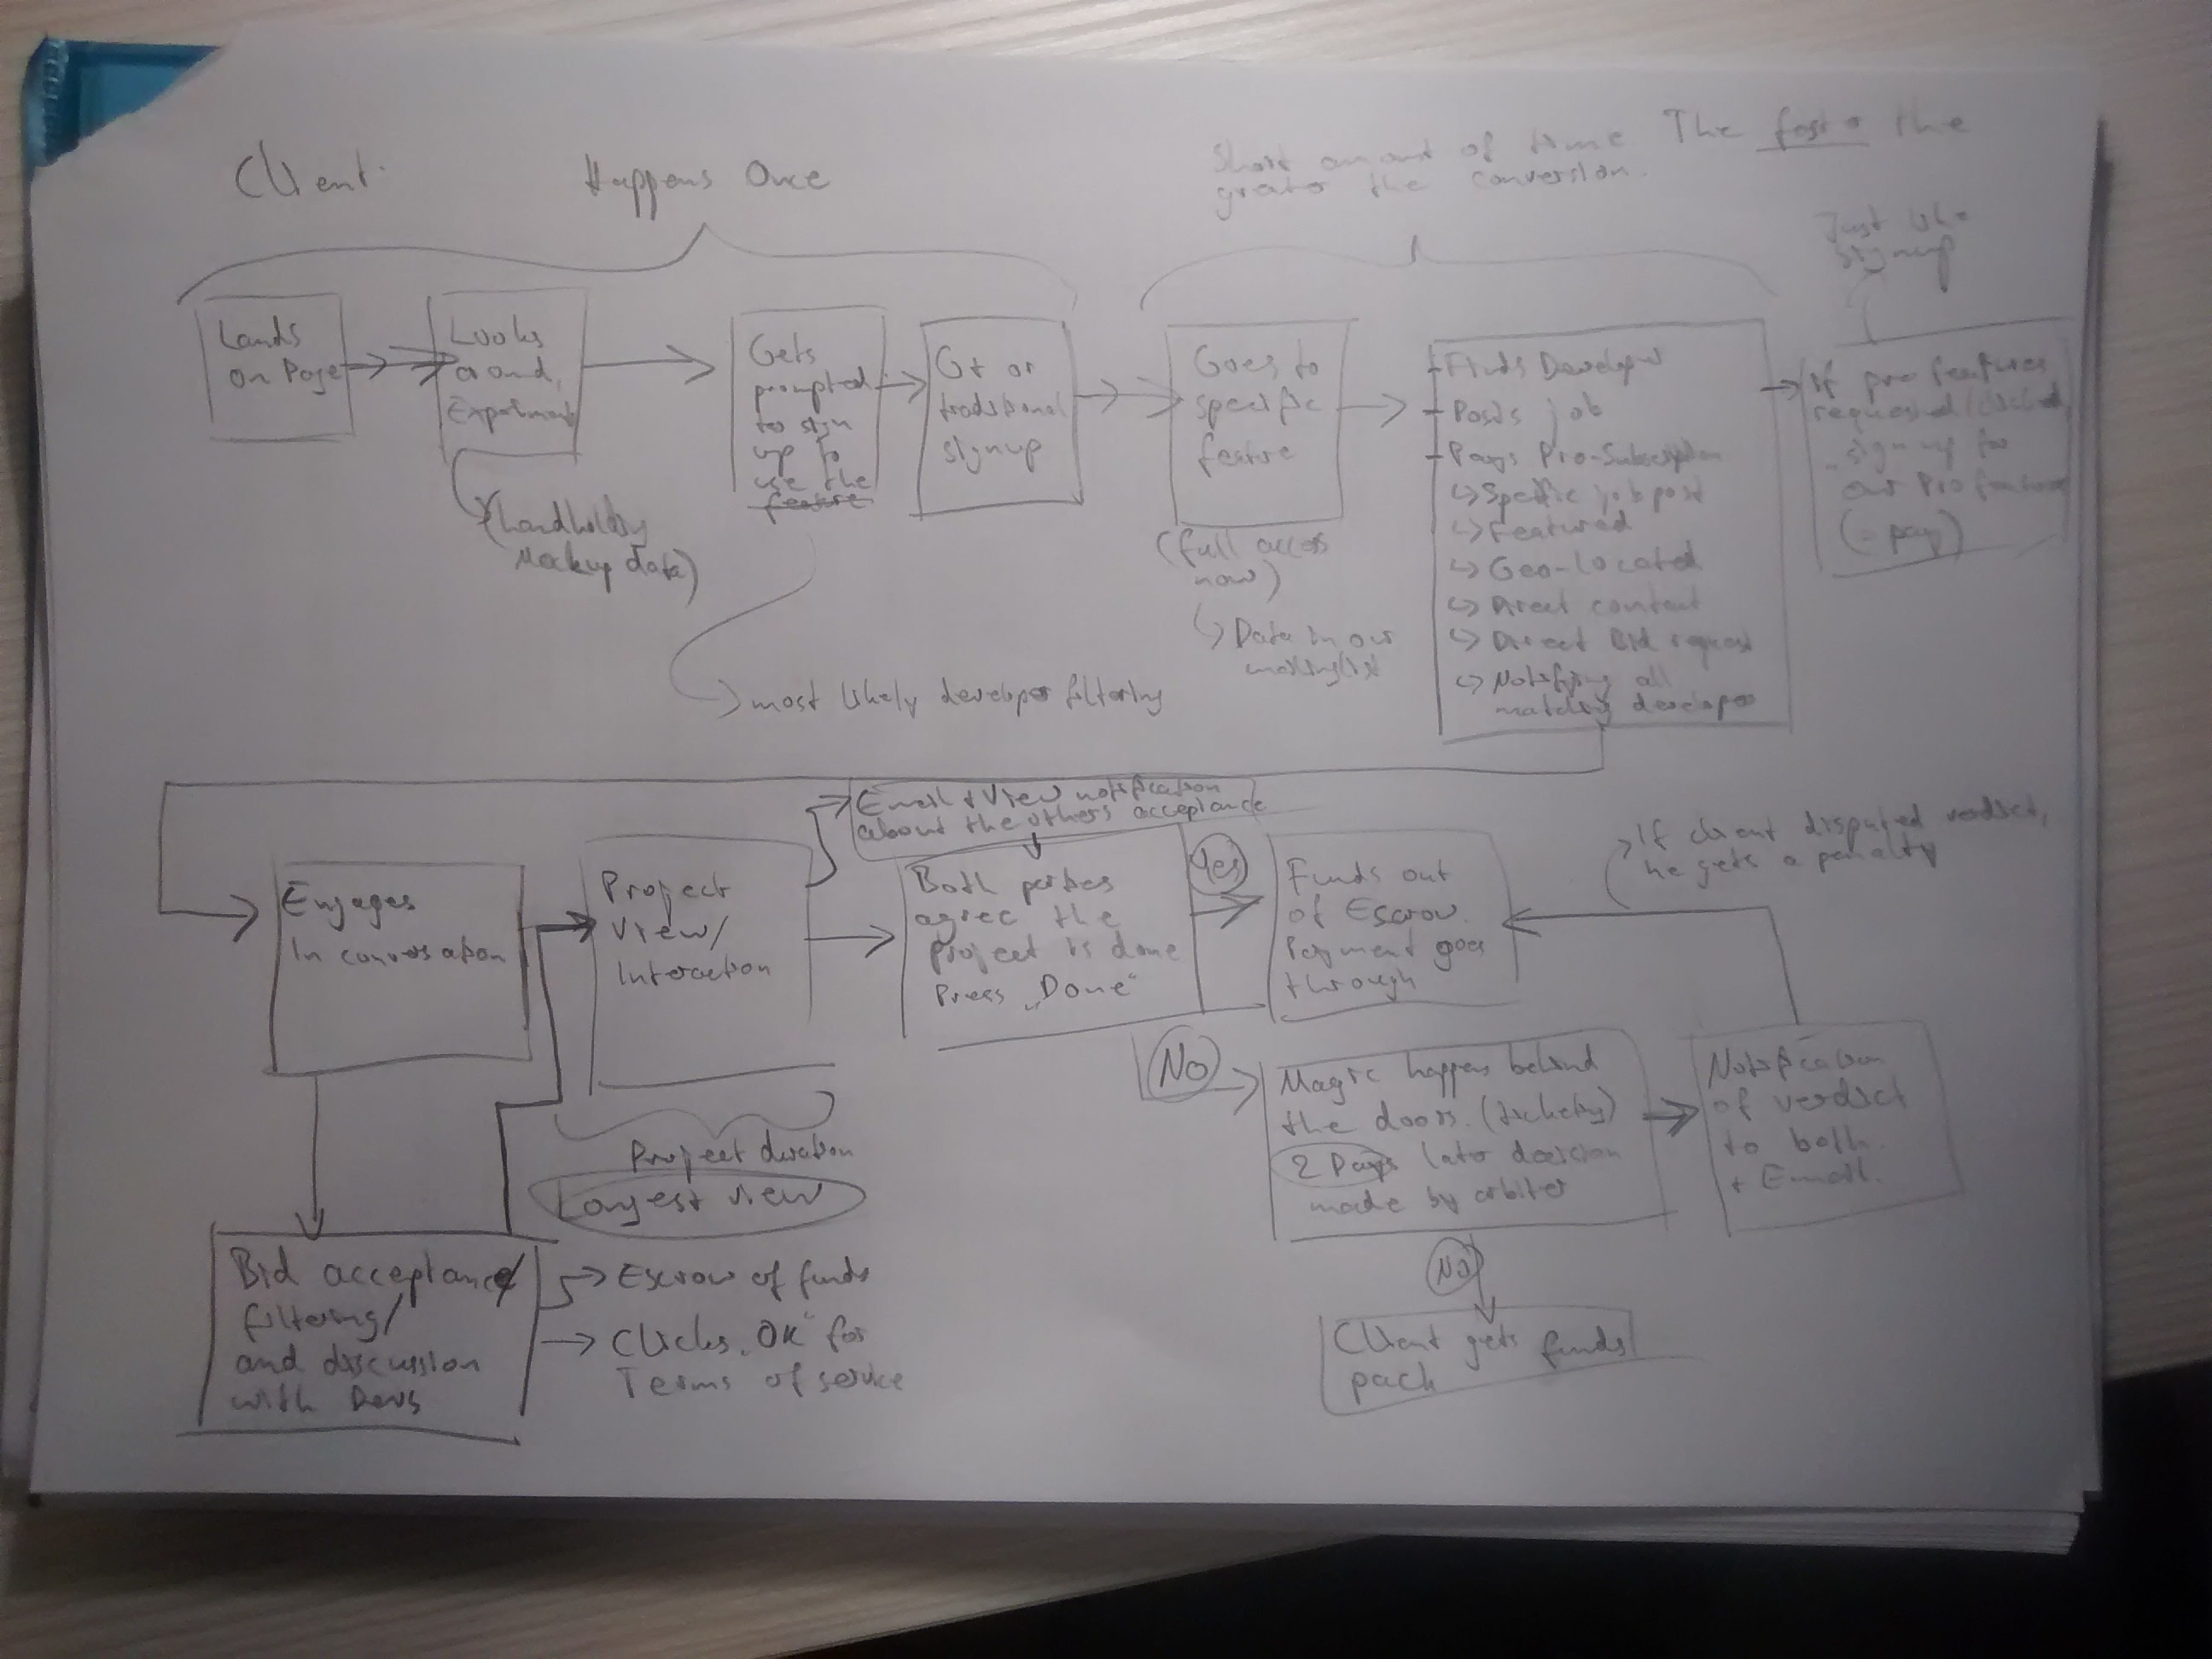 Client:
Happens Once
Short amount of time The faster the
greater the conversion.
Just like
signup
Lands
on Page
Looks
around,
Experiment
(handholding
Mockup data)
Gets
prompted
to sign
up to
use the
feature
most likely developer filtering
G+ or
traditional
signup
Goes to
specific
feature
(full access
now)
Data in our
mailinglist
- Finds Developer
- Posts job
- Pays Pro-Subscription
Specific job post
Featured
Geo-located
Direct contact
Direct Bid request
Notifying all
matching developer
If pro features
requested
sign up for
our Pro features
(= pay)
Email + View notification
about the others acceptance
If client disputed verdict,
he gets a penalty
Engages
in conversation
Project
View/
Interaction
Both parties
agree the
project is done
Press „Done“
Yes
Funds out
of Escrow.
Payment goes
through
Project duration
Longest view
No
Magic happens behind
the doors. (ticketing)
2 Days later decision
made by arbiter
Notification
of verdict
to both.
+ Email.
Bid acceptance
filtering/
and discussion
with Devs
Escrow of funds
Clicks „OK“ for
Terms of service
No
Client gets funds
pack